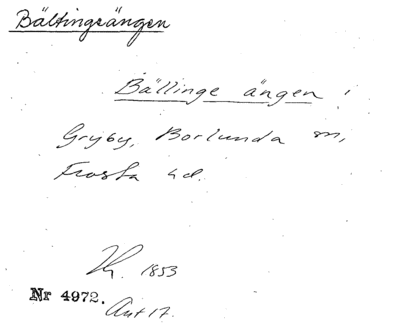 Bältingsängen
Bällinge ängen,
Gryby, Borlunda sn,
Frosta hd.
1853
Nr 4972.
Akt 17.